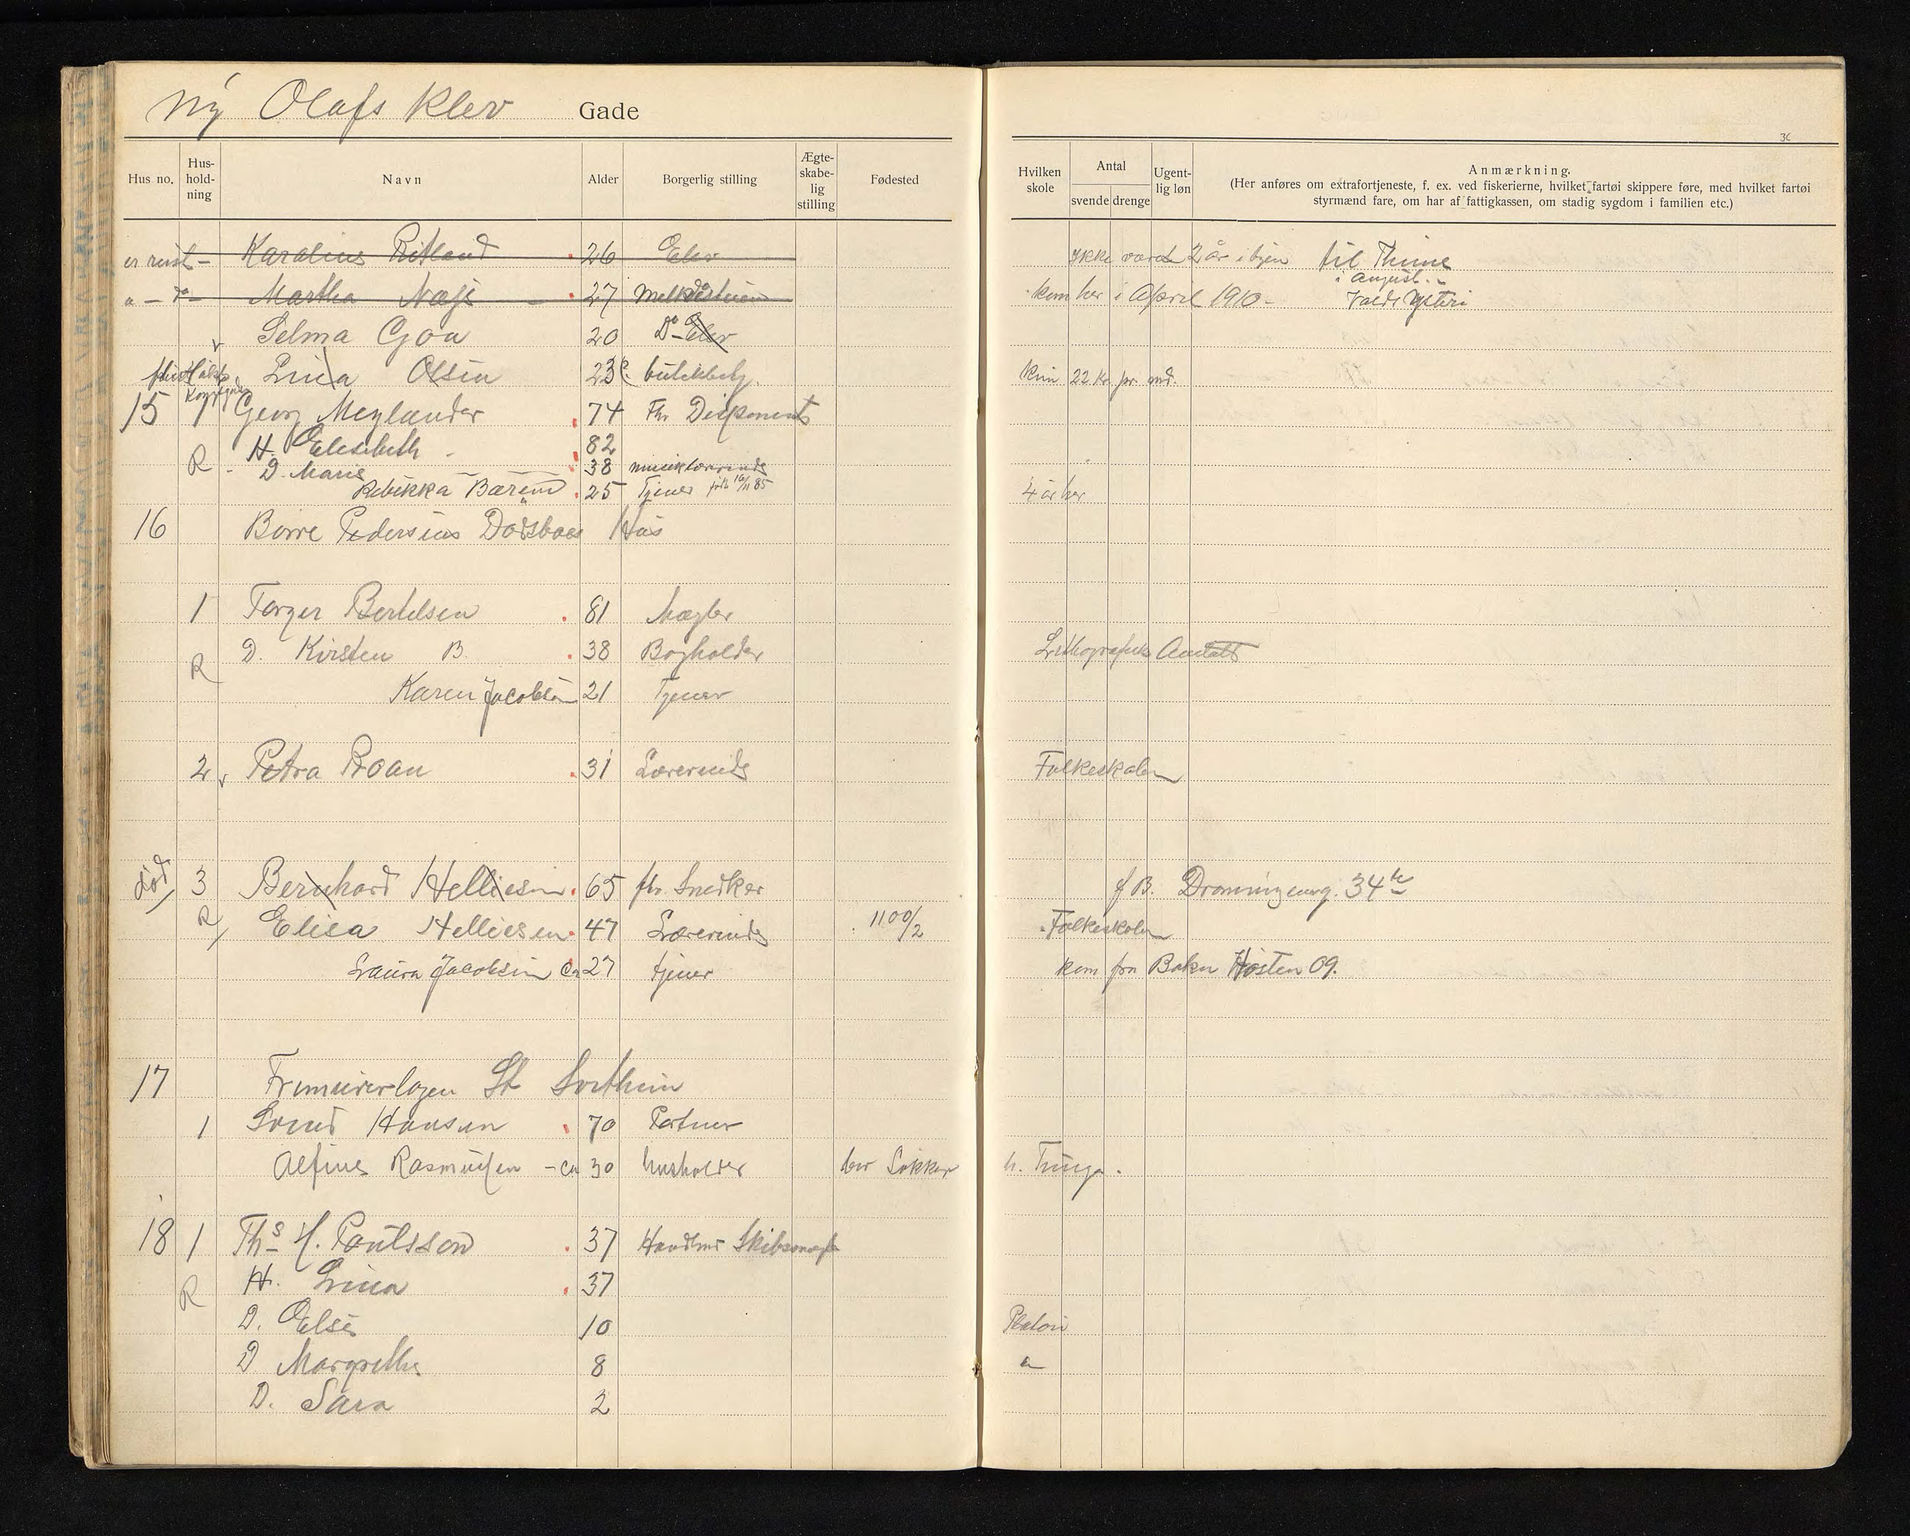 Ny Olafs Klev Gade
Hus no. Hus-hold-ning Navn Alder Borgerlig stilling Ægte-skabe-lig stilling Fødested
er reist - Karaline Risland 26 Elev
" - d° - Martha Næss - 27
Selma Goa 20 D° Elev
Lina Olsen 23 butikbetj.
15 1 Georg Meylænder 74 Fhv Disponent
H. Elisabeth - 82
R - D. Marie 38 musiklærerinde
Rebekka Bærem 25 Tjener født 16/11 85
16 Børre Pedersens Dødsboes Hus
1 Torger Bertelsen 81 Mægler
R D. Kirsten B 38 Bogholder
Karen Jacobsen 21 Tjener
2 Petra Roan 31 Lærerinde
død 3 Bernhard Helliesen 65 fhv. Snedker
R Elisa Helliesen 47 Lærerinde 1100/2
Laura Jacobsen ca 27 tjener
17 Frimurerlogen St Svithun
1 Svend Hansen 70 Portner
Alfine Rasmussen - ca 30 husholder
18 1 Ths H. Poulsson 37 Handler
R H. Lina 37
D. Else 10
D Margrethe 8
D. Sara 2
36
Hvilken skole Antal svende drenge Ugent-lig løn Anmærkning.
(Her anføres om extrafortjeneste, f. ex. ved fiskerierne, hvilket fartøi skippere føre, med hvilket fartøi
styrmænd fare, om har af fattigkassen, om stadig sygdom i familien etc.)
Ikke været 2 år i byen til Thime
i August
kom her i April 1910 -
kun 22 Kr pr. md.
4 år her
Lithografisk Anstalt
Folkeskolen
f B. Dronningensg. 34
Folkeskolen
kom fra Bokn Høsten 09.
"